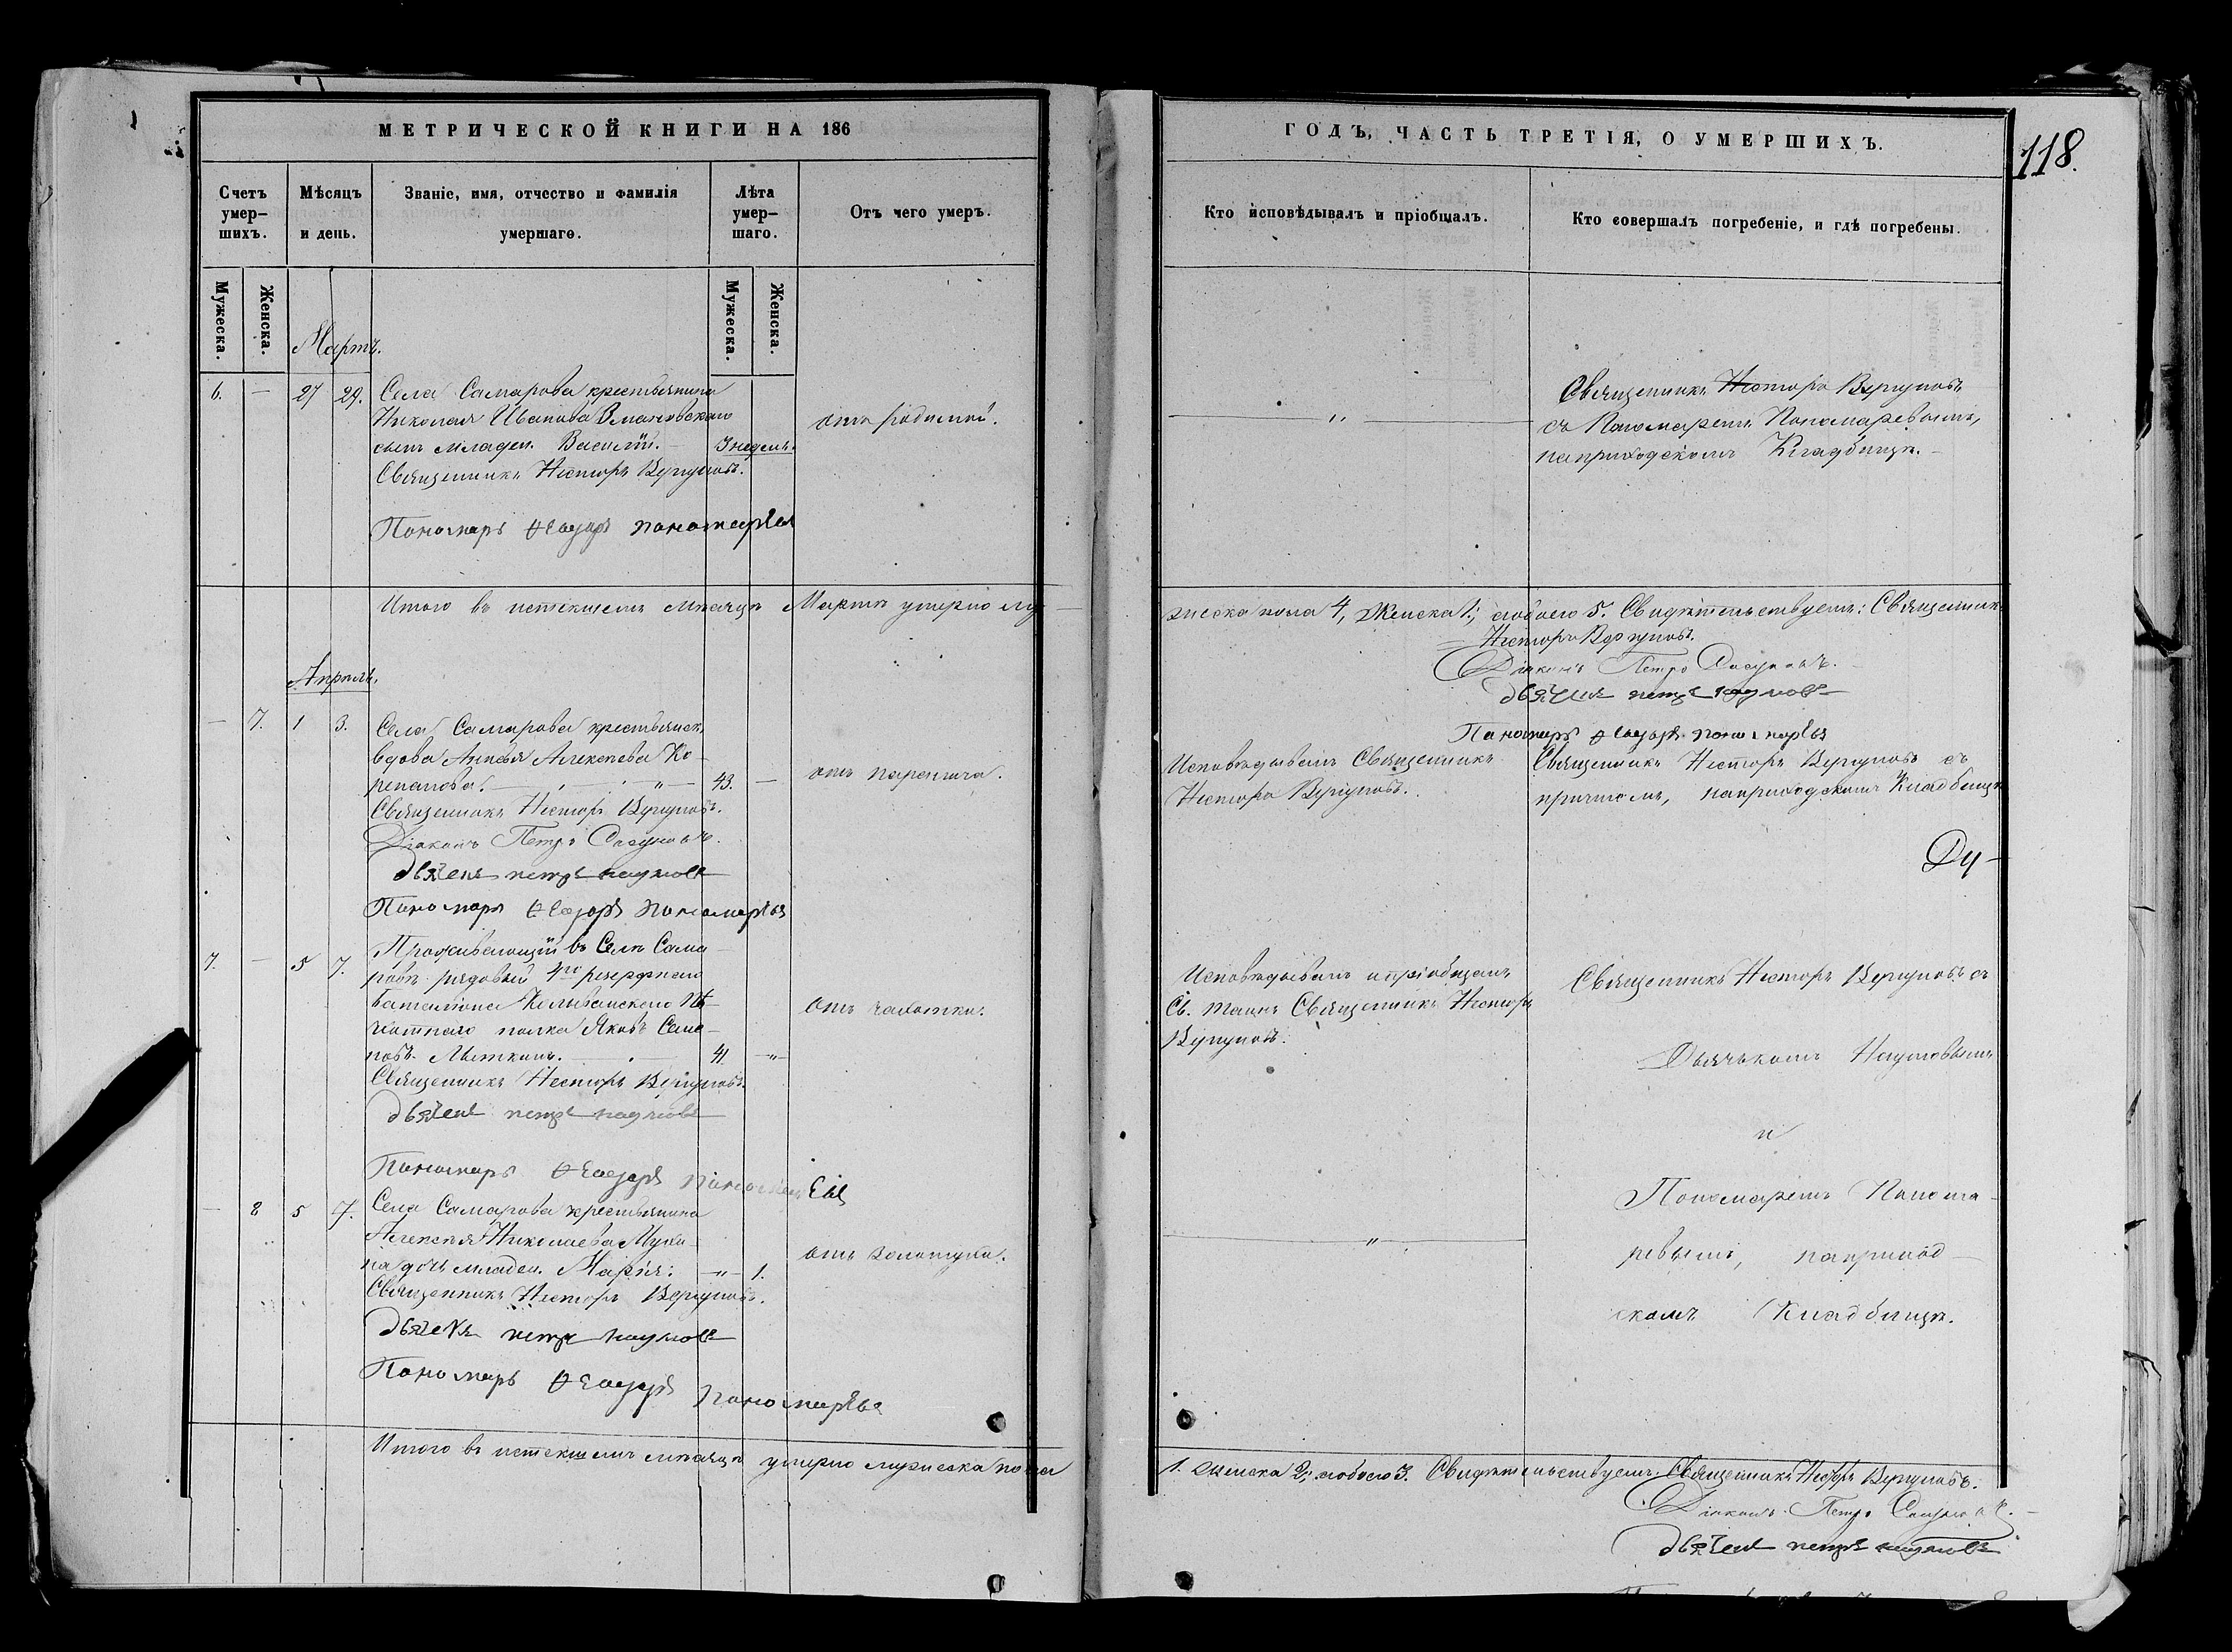 МЕТРИЧЕСКОЙ КНИГИ НА 186
Счетъ умер-шихъ.
Мѣсяцъ и день.
Званіе, имя, отчество и фамилія умершаго.
Лѣта умер-шаго.
Отъ чего умеръ.
Мужеска.
Женска.
Мужеска.
Женска.
Мартъ.
6. — 27 29. Села Самарова крестьянина
Николая Иванова
сынъ младен. Василій. — 3 недѣль.
отъ родимой.
Священникъ Несторъ Вергуновъ.
Пономарь Ѳеодоръ Пономаревъ
Итого въ истекшемъ мѣсяцѣ Мартѣ умерло му-
Апрѣль.
— 7. 1 3. Села Самарова крестьянск.
вдова Алексѣева Ко-
репанова. — 43. —
Священникъ Несторъ Вергуновъ.
Діаконъ Петръ
дьячекъ петръ наумовъ
Пономарь Ѳеодоръ Пономаревъ
7. — 5 7. Проживающій въ Селѣ Сама-
ровѣ рядовой 4го резервнаго
баталіона Колыванскаго Пѣ-
хотнаго полка Яковъ Семе-
новъ — 41 — „ —
отъ чахотки.
Священникъ Несторъ Вергуновъ.
дьячекъ петръ наумовъ
Пономарь Ѳеодоръ Пономаревъ
— 8 5 7. Села Самарова крестьянина
Алексѣя Николаева
на дочь младен. Марія: — „ — 1.
отъ золотухи.
Священникъ Несторъ Вергуновъ.
дьячекъ петръ наумовъ
Пономарь Ѳеодоръ Пономаревъ
Итого въ истекшемъ мѣсяцѣ умерло мужеска пола
ГОДЪ, ЧАСТЬ ТРЕТІЯ, О УМЕРШИХЪ.
118.
Кто исповѣдывалъ и пріобщалъ.
Кто совершалъ погребеніе, и гдѣ погребены.
— „ —
Священникъ Несторъ Вергуновъ
съ Пономаремъ Пономаревымъ,
на приходскомъ Кладбищѣ. —
жеска пола 4, Женска 1; обоего 5. Свидѣтельствуемъ: Священникъ
Несторъ Вергуновъ.
Діаконъ Петръ
дьячекъ петръ наумовъ
Пономарь Ѳеодоръ Пономаревъ
Исповѣдывалъ Священникъ
Несторъ Вергуновъ.
Священникъ Несторъ Вергуновъ съ
причтомъ, на приходскомъ Кладбищѣ
Исповѣдывалъ и пріобщалъ
Св. Таинъ Священникъ Несторъ
Вергуновъ.
Священникъ Несторъ Вергуновъ съ
Дьячькомъ Наумовымъ
и
Пономаремъ Понома-
ревымъ, на приход-
скомъ Кладбищѣ.
— „ —
1. Женска 2; обоего 3. Свидѣтельствуемъ: Священникъ Несторъ Вергуновъ.
Діаконъ Петръ
дьячекъ петръ наумовъ